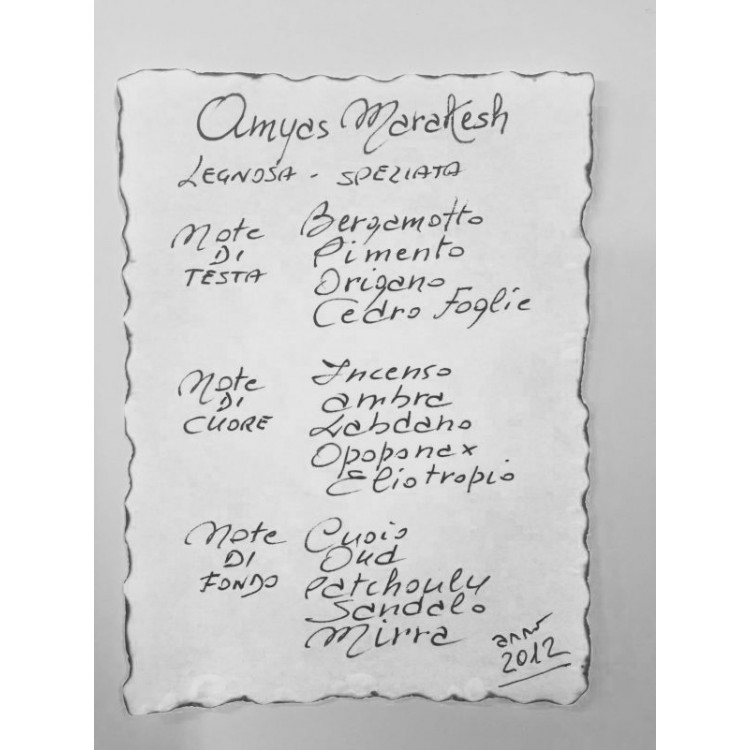 Amyas Marakesh
LEGNOSA - SPEZIATA
Note DI TESTA
Bergamotto
Pimento
Origano
Cedro Foglie
Note DI CUORE
Incenso
ambra
Labdano
Opoponax
Eliotropio
Note DI FONDO
Cuoio
Oud
Patchouly
Sandalo
Mirra
anno
2012